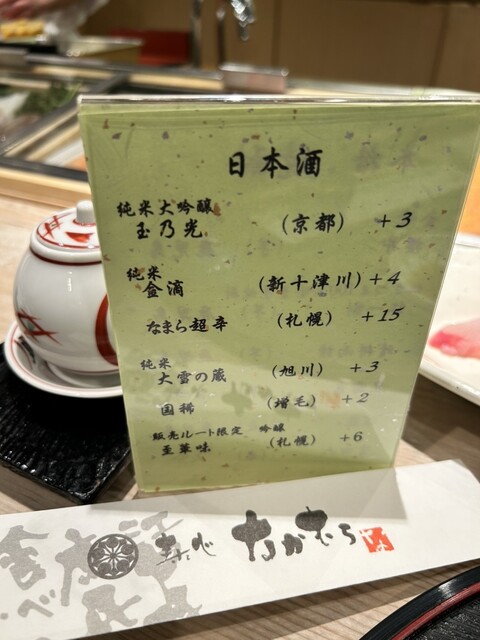 日本酒
純米大吟醸
玉乃光 (京都) +3
純米
金滴 (新十津川) +4
なまら超辛 (札幌) +15
純米
大雪の蔵 (旭川) +3
国稀 (増毛) +2
販売ルート限定 吟醸
至華味 (札幌) +6
たかむら